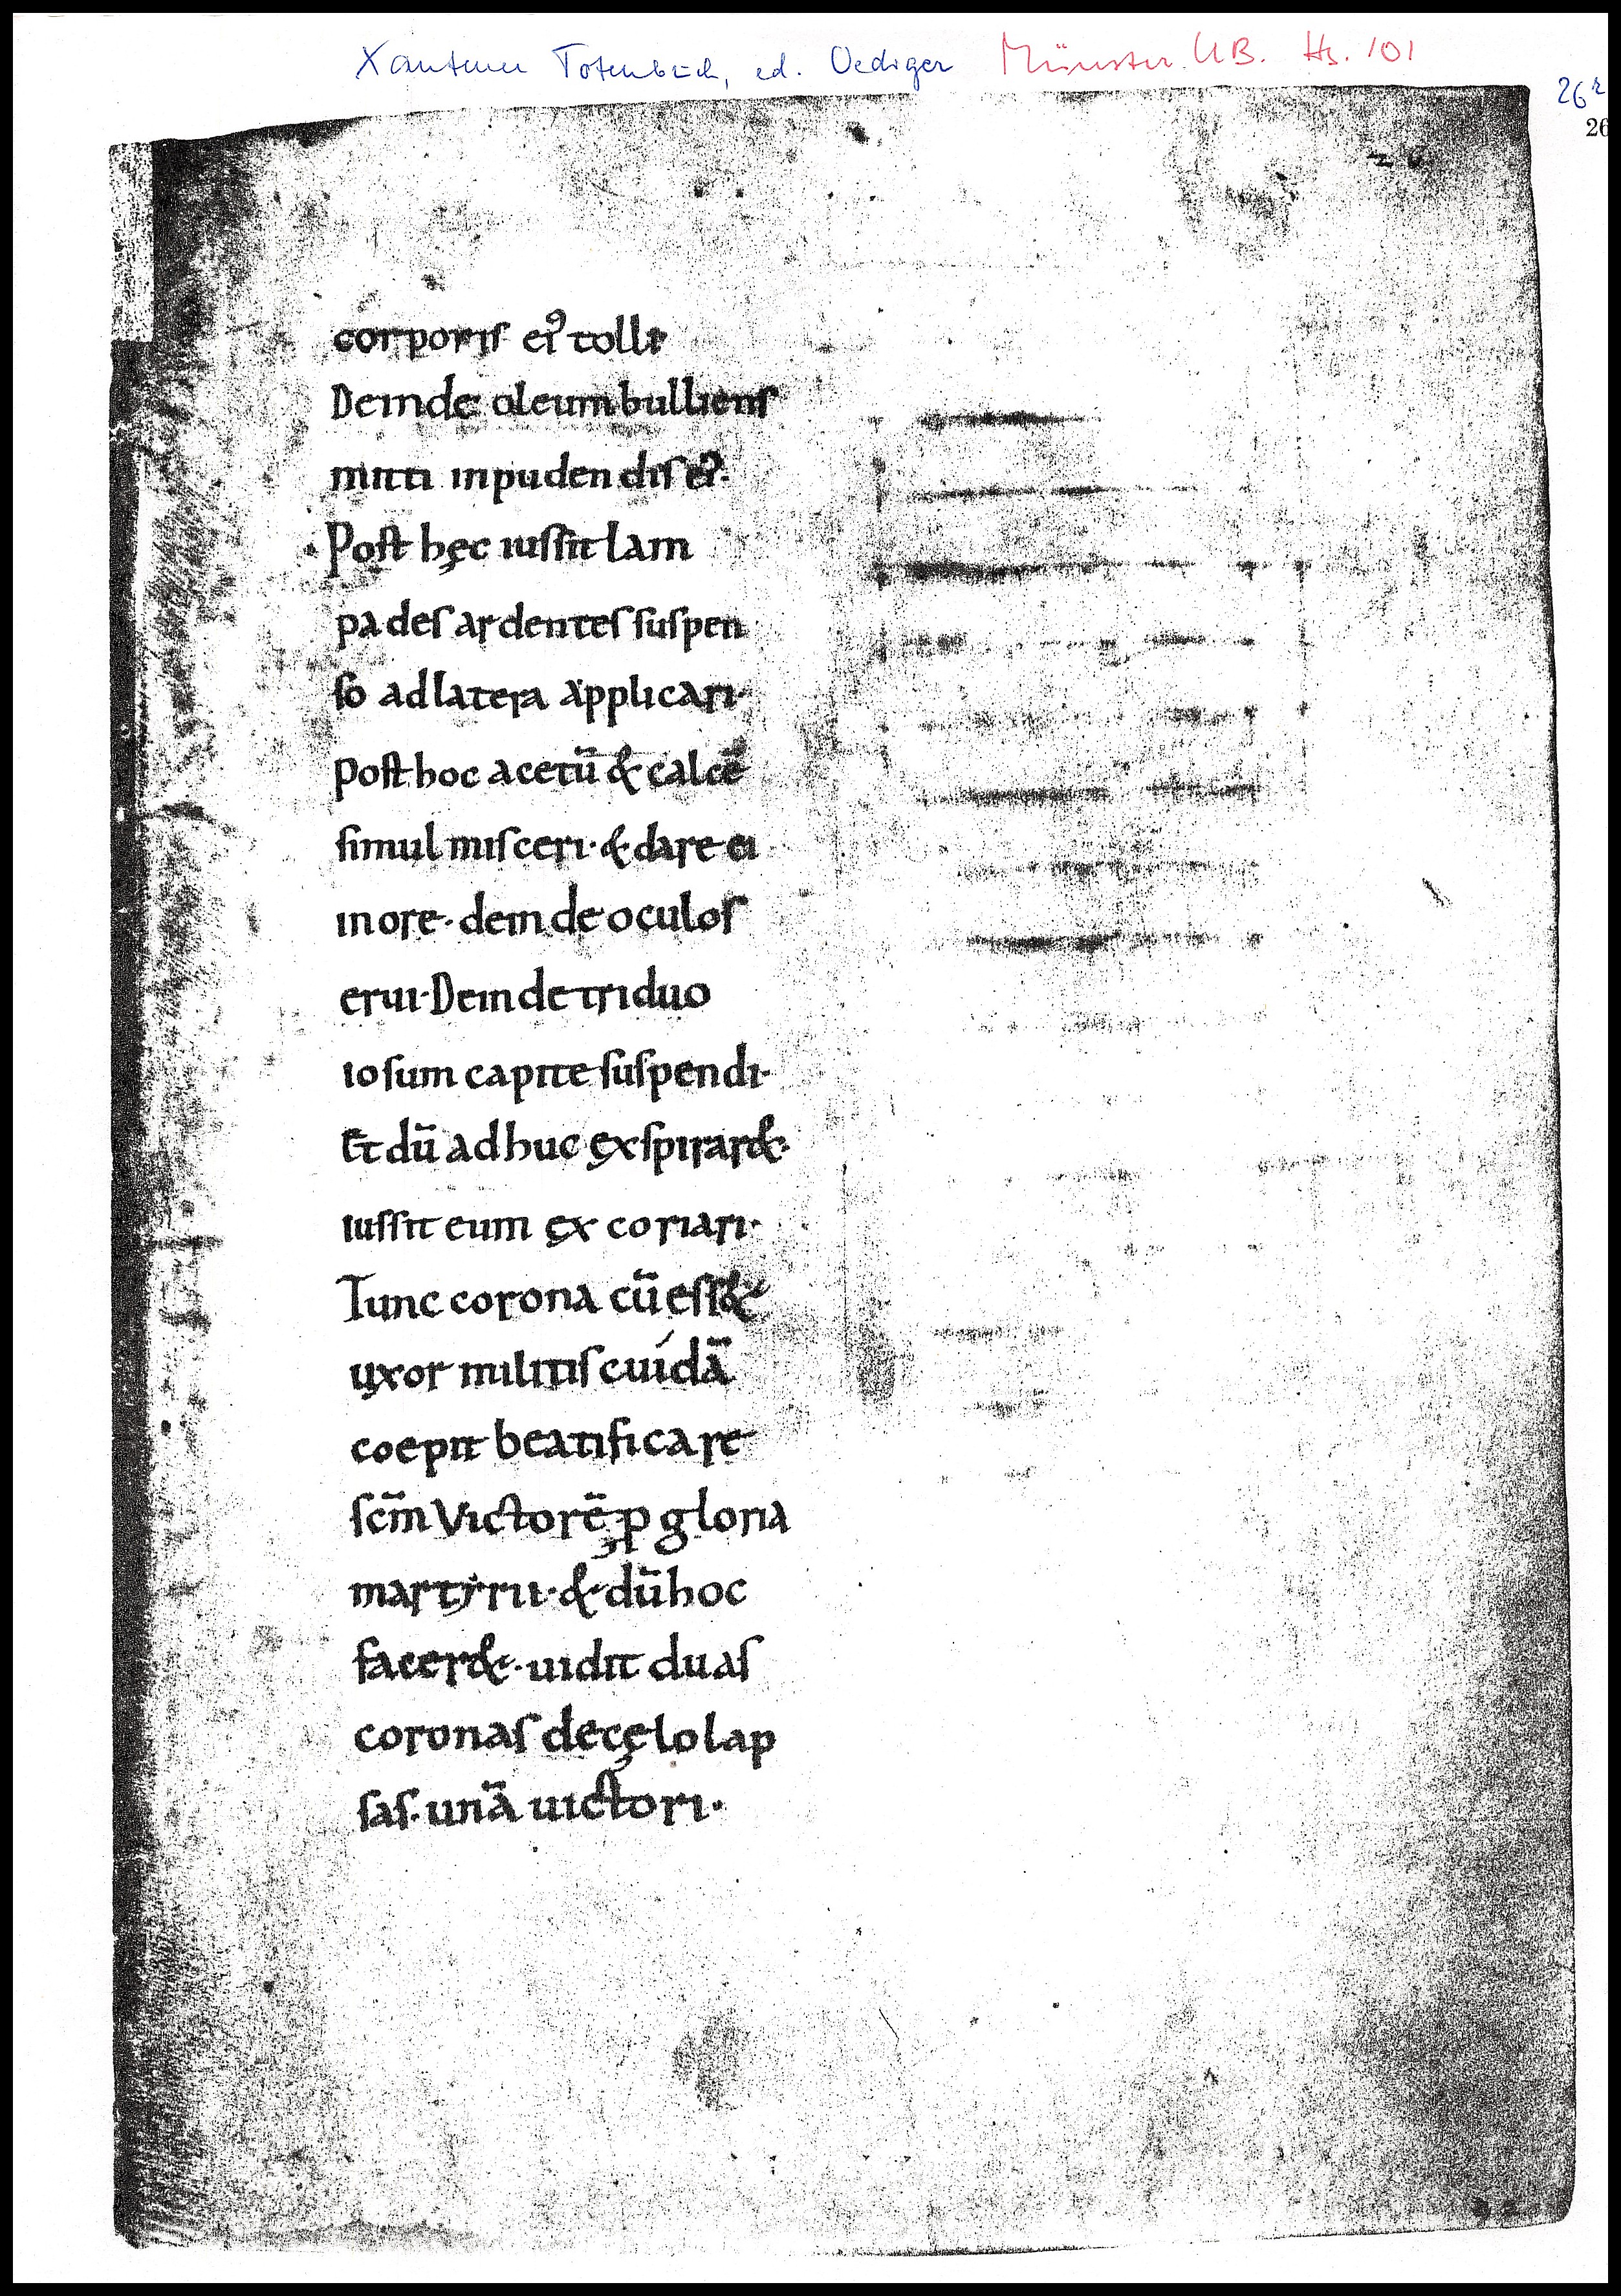 Xantener Totenbuch, ed. Oediger Münster. UB. Hs. 101
26r
26
26
corporiſ ei᾽ tolli
Deinde oleum bullienſ
mitti in pudendiſ ei᾽·
Poſt hęc iuſſit lam
padeſ ardenteſ ſuſpen
ſo ad latera applicari·
poſt hoc acetū & calcē
ſimul miſceri· & dare ei
in ore· deinde oculoſ
erui· Deinde triduo
ioſum capite ſuſpendi·
Et dū adhuc ęxſpirar&·
iuſſit eum ęx coriari·
Tunc corona cū eſſ&
uxor militiſ cuídā
coepit beatificare
ſcm̄ Victorē ꝓ gloria
martẏrii· & dū hoc
facer&· uidit duaſ
coronaſ de cęlo lap
ſaſ· unā uictori·